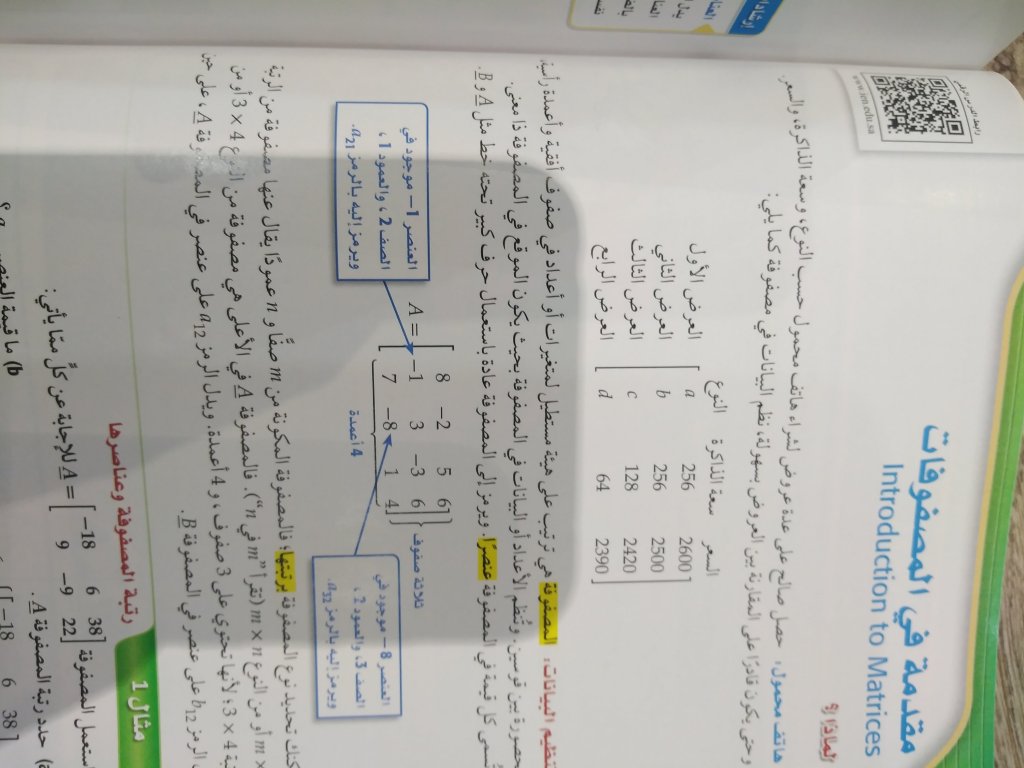 مقدمة في المصفوفات
Introduction to Matrices
رابط الدرس الرقمي
www.ien.edu.sa
لماذا؟
هاتف محمول: حصل صالح على عدة عروض لشراء هاتف محمول حسب النوع، وسعة الذاكرة، والسعر.
وحتى يكون قادرًا على المقارنة بين العروض بسهولة، نظم البيانات في مصفوفة كما يلي:
النوع سعة الذاكرة السعر
العرض الأول a 256 2600
العرض الثاني b 256 2500
العرض الثالث c 128 2420
العرض الرابع d 64 2390
تنظيم البيانات: المصفوفة هي ترتيب على هيئة مستطيل لمتغيرات أو أعداد في صفوف أفقية وأعمدة رأسية،
محصورة بين قوسين. وتُنظم الأعداد أو البيانات في المصفوفة بحيث يكون الموقع في المصفوفة ذا معنى.
تُسمى كل قيمة في المصفوفة عنصرًا. ويرمز إلى المصفوفة عادة باستعمال حرف كبير تحته خط مثل A و B.
العنصر 1− موجود في
الصف 2، والعمود 1،
ويرمز إليه بالرمز a21.
A = [ 8 −2 5 6
−1 3 −3 6
7 −8 1 4 ]
ثلاثة صفوف
4 أعمدة
العنصر 8− موجود في
الصف 3، والعمود 2،
ويرمز إليه بالرمز a32.
تحديد نوع المصفوفة برتبتها؛ فالمصفوفة المكونة من m صفًا و n عمودًا يقال عنها مصفوفة من الرتبة
m × n أو من النوع m × n (تقرأ "m في n"). فالمصفوفة A في الأعلى هي مصفوفة من النوع 3 × 4 أو من
3 × 4؛ لأنها تحتوي على 3 صفوف، و 4 أعمدة. ويدل الرمز a12 على عنصر في المصفوفة A، على حين
الرمز b12 على عنصر في المصفوفة B.
مثال 1 رتبة المصفوفة وعناصرها
استعمل المصفوفة A = [ −18 6 38
9 −9 22 ] للإجابة عن كلٍّ ممّا يأتي:
a) حدد رتبة المصفوفة A.
b) ما قيمة العنصر
−18 6 38